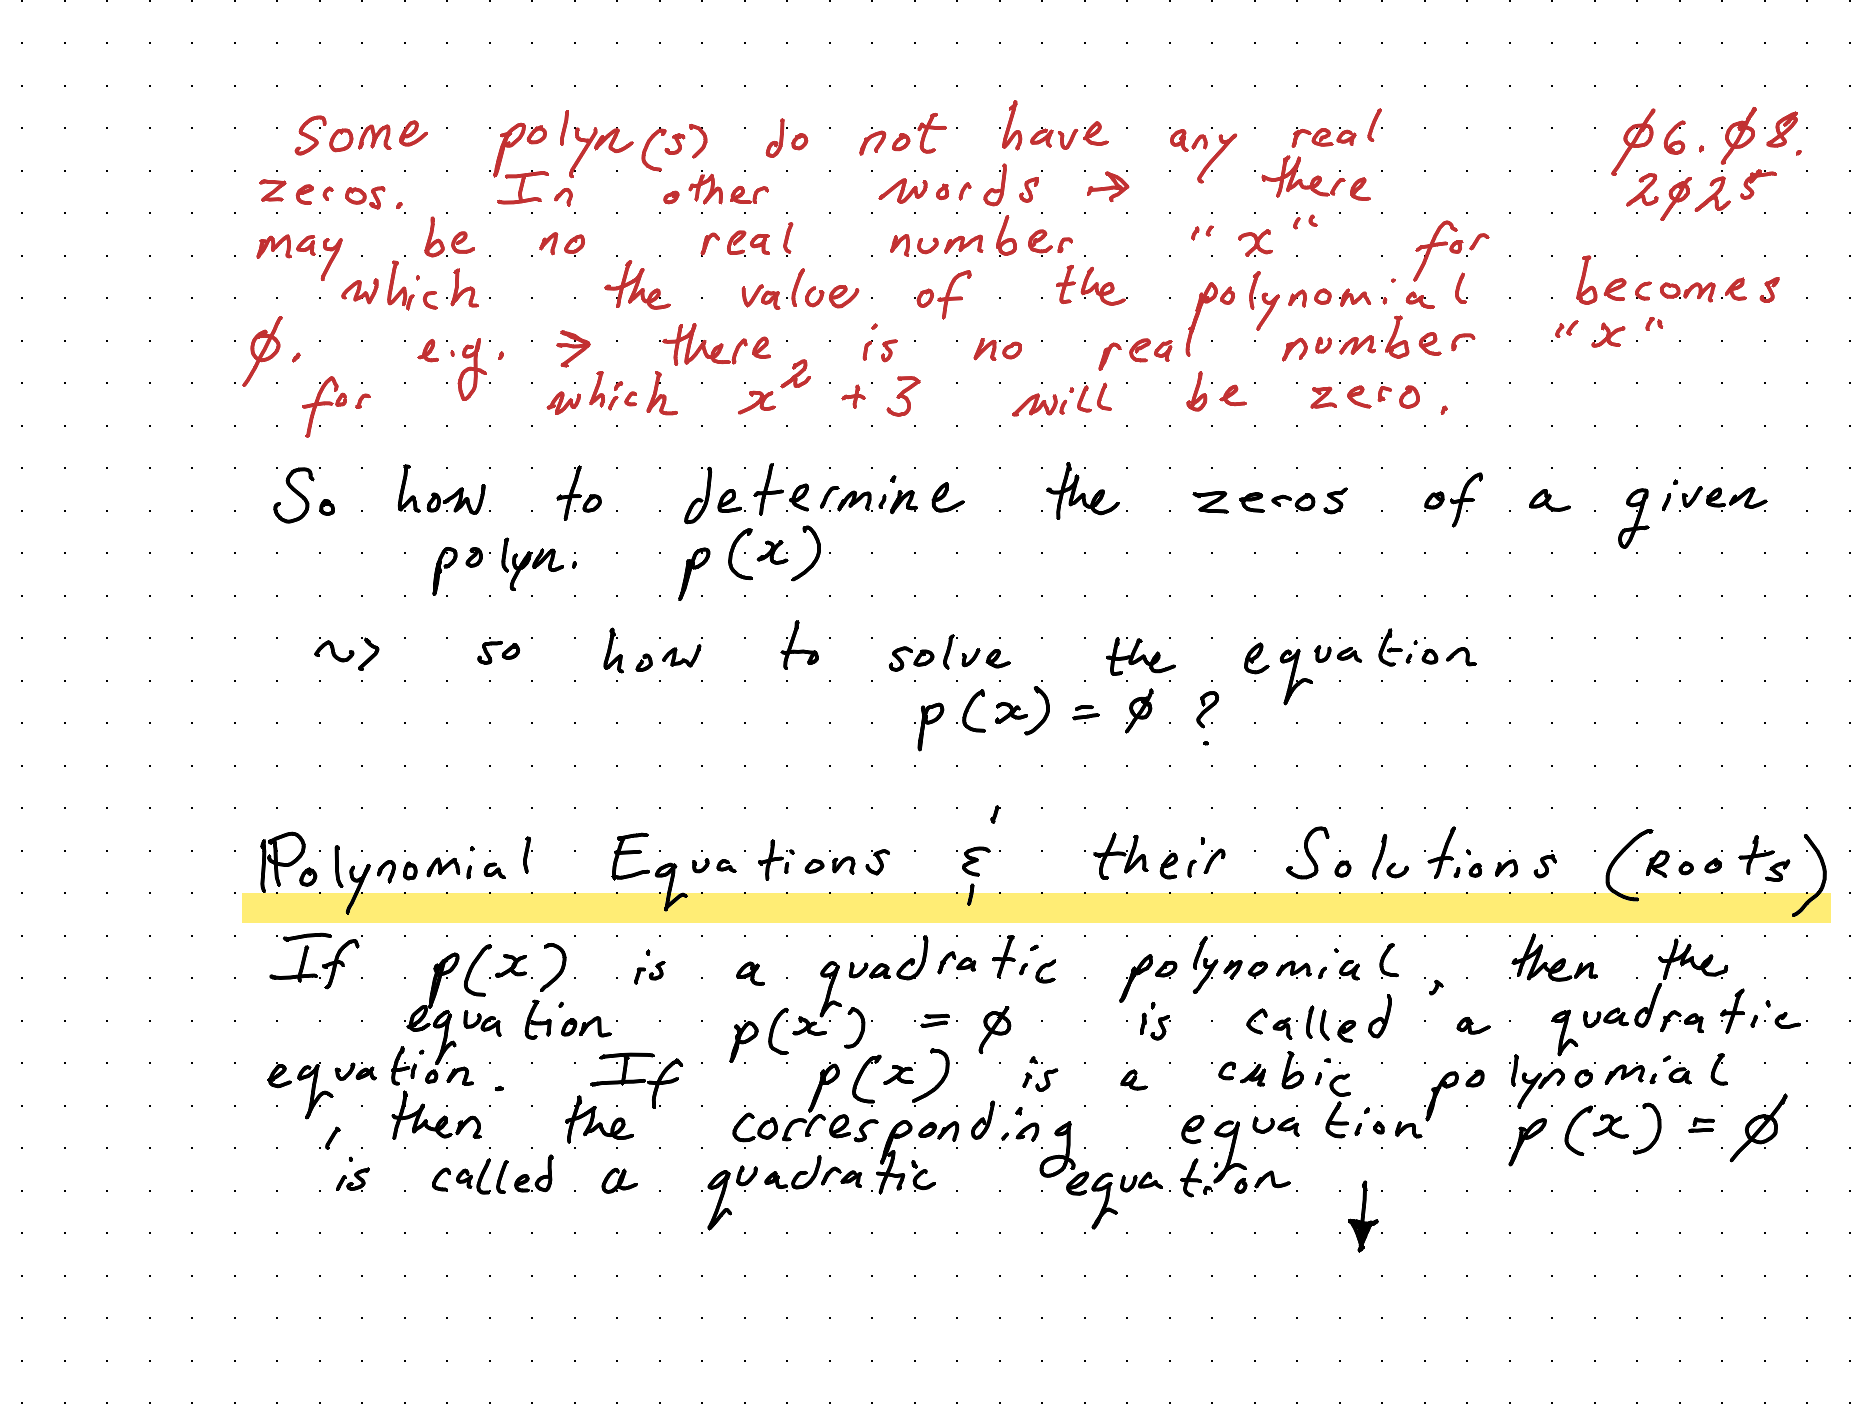 Some polyn(s) do not have any real ∅6.∅8.
zeros. In other words → there 2∅25
may be no real number "x" for
which the value of the polynomial becomes
∅. e.g. → there is no real number "x"
for which x² + 3 will be zero.
So how to determine the zeros of a given
polyn. p(x)
~> so how to solve the equation
p(x) = ∅ ?
Polynomial Equations & their Solutions (Roots)
If p(x) is a quadratic polynomial, then the
equation p(x) = ∅ is called a quadratic
equation. If p(x) is a cubic polynomial
, then the corresponding equation p(x) = ∅
is called a quadratic equation ↓